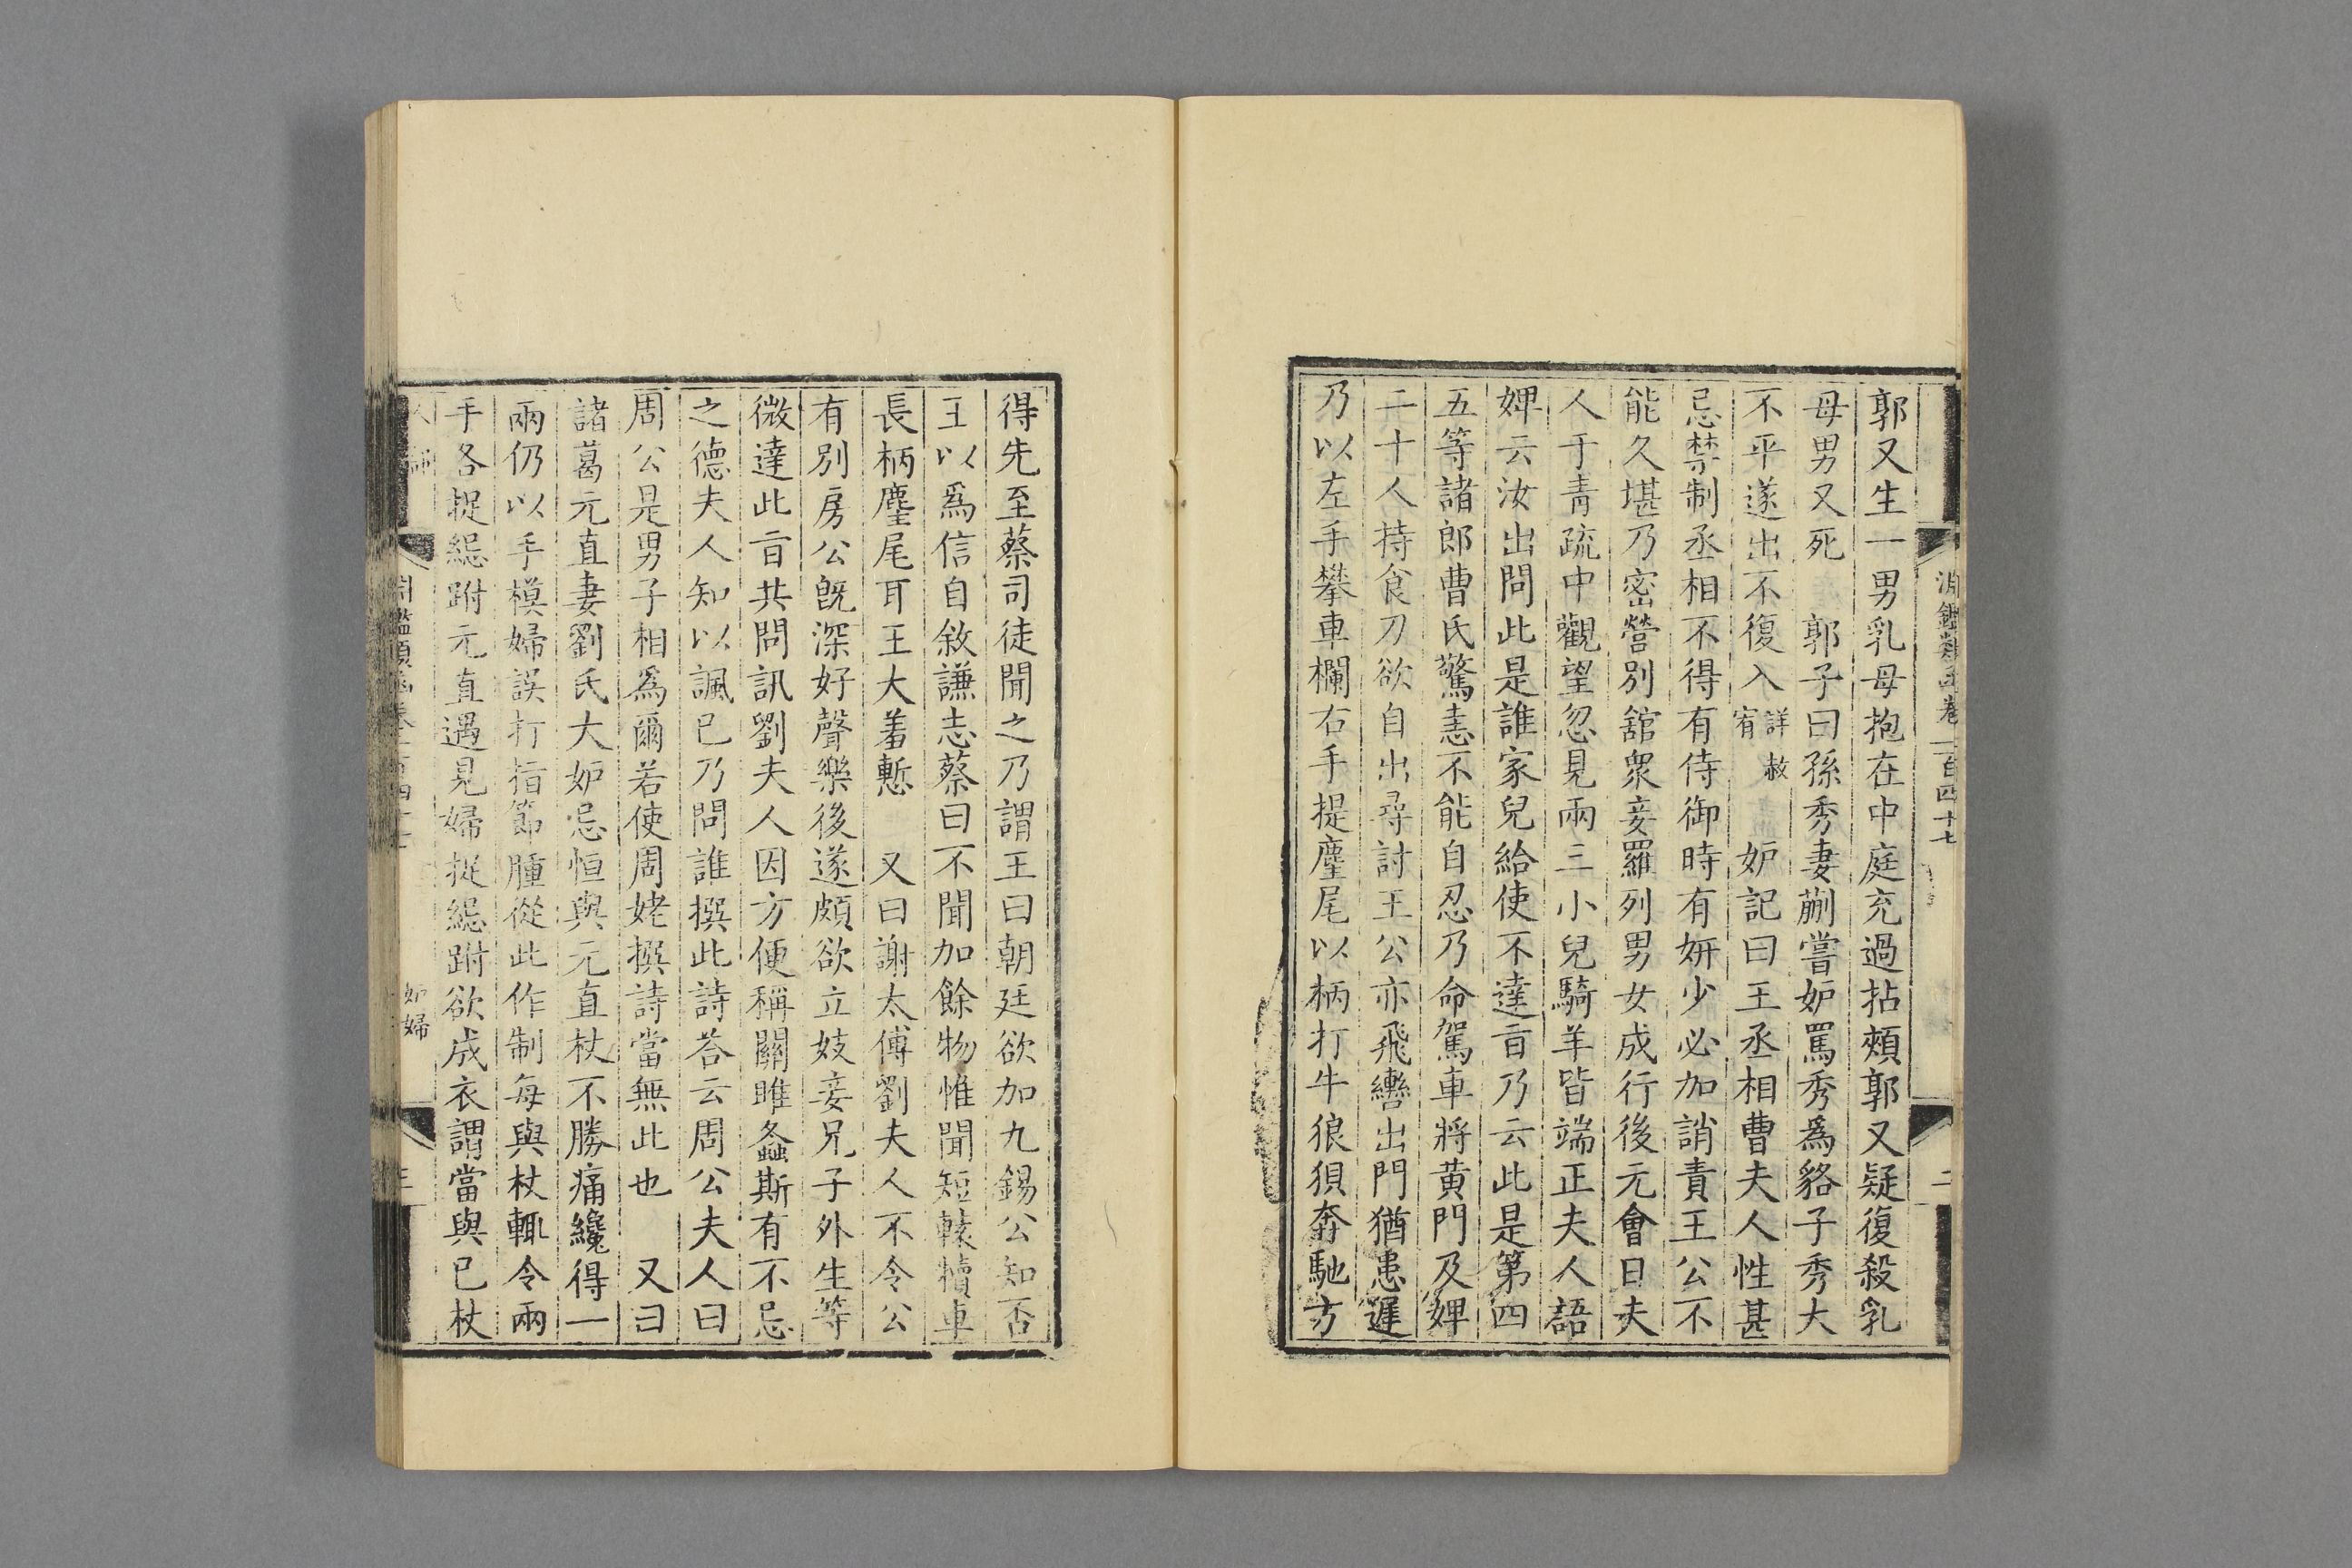 郭又生一男乳母抱在中庭充過拈頰郭又疑復殺乳
母男又死　郭子曰孫秀妻蒯嘗妒罵秀爲貉子秀大
不平遂出不復入詳赦宥　妒記曰王丞相曹夫人性甚
忌禁制丞相不得有侍御時有妍少必加誚責王公不
能久堪乃密營別舘衆妾羅列男女成行後元會日夫
人于青疏中觀望忽見兩三小兒騎羊皆端正夫人語
婢云汝出問此是誰家兒給使不達㫖乃云此是第四
五等諸郎曹氏驚恚不能自忍乃命駕車將黃門及婢
二十人持食刀欲自出尋討王公亦飛轡出門猶患遲
乃以左手攀車欄右手提麈尾以柄打牛狼狽奔馳方
得先至蔡司徒聞之乃謂王曰朝廷欲加九錫公知否
王以爲信自敘謙志蔡曰不聞加餘物惟聞短轅犢車
長柄麈尾耳王大羞慙　又曰謝太傅劉夫人不令公
有別房公旣深好聲樂後遂頗欲立妓妾兄子外生等
微達此㫖共問訊劉夫人因方便稱關雎螽斯有不忌
之德夫人知以諷已乃問誰撰此詩荅云周公夫人曰
周公是男子相爲爾若使周姥撰詩當無此也　又曰
諸葛元直妻劉氏大妒忌恒與元直杖不勝痛纔得一
兩仍以手模婦誤打指節腫從此作制每與杖輒令兩
手各捉䋛跗元直遇見婦捉䋛跗欲成衣謂當與已杖
妒婦
三